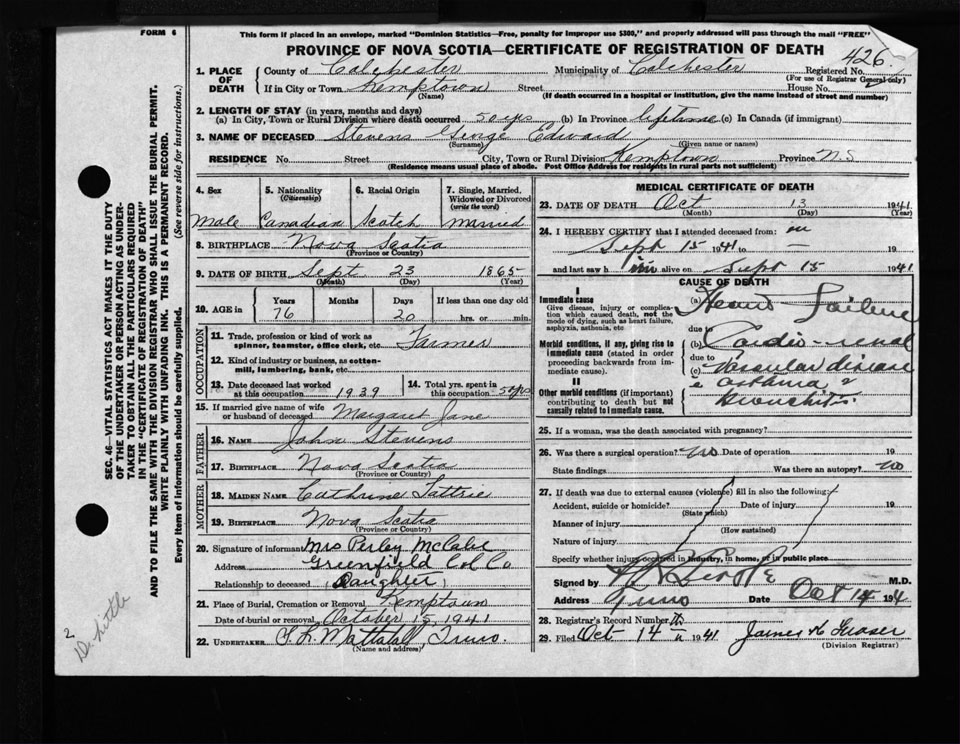 FORM 6
This form if placed in an envelope, marked "Dominion Statistics—Free, penalty for improper use $300," and properly addressed will pass through the mail "FREE"
PROVINCE OF NOVA SCOTIA—CERTIFICATE OF REGISTRATION OF DEATH
426
1. PLACE OF DEATH County of Colchester Municipality of Colchester Registered No.
(For use of Registrar General only)
If in City or Town Kemptown Street House No.
(Name) (If death occurred in a hospital or institution, give the name instead of street and number)
2. LENGTH OF STAY (in years, months and days)
(a) In City, Town or Rural Division where death occurred 50 yrs (b) In Province lifetime (c) In Canada (if immigrant)
3. NAME OF DECEASED Stevens George Edward
(Surname) (Given name or names)
RESIDENCE No. Street City, Town or Rural Division Kemptown Province N.S
(Residence means usual place of abode. Post Office Address for residents in rural parts not sufficient)
4. Sex 5. Nationality (Citizenship) 6. Racial Origin 7. Single, Married, Widowed or Divorced (write the word)
Male Canadian Scotch Married
8. BIRTHPLACE Nova Scotia
(Province or Country)
9. DATE OF BIRTH Sept 23 1865
(Month) (Day) (Year)
10. AGE in Years Months Days If less than one day old
76 20 hrs. or min.
OCCUPATION
11. Trade, profession or kind of work as spinner, teamster, office clerk, etc. Farmer
12. Kind of industry or business, as cotton-mill, lumbering, bank, etc.
13. Date deceased last worked at this occupation 1939 14. Total yrs. spent in this occupation 50 yrs
15. If married give name of wife or husband of deceased Margaret Jane
FATHER
16. NAME John Stevens
17. BIRTHPLACE Nova Scotia
(Province or Country)
MOTHER
18. MAIDEN NAME Cathrine Tattrie
19. BIRTHPLACE Nova Scotia
(Province or Country)
20. Signature of informant Mrs Perley McCabe
Address Greenfield Col. Co
Relationship to deceased (Daughter)
21. Place of Burial, Cremation or Removal Kemptown
Date of burial or removal October 15, 1941
22. UNDERTAKER Truro.
(Name and address)
MEDICAL CERTIFICATE OF DEATH
23. DATE OF DEATH Oct 13 1941
(Month) (Day) (Year)
24. I HEREBY CERTIFY that I attended deceased from: on
Sept 15 1941 to — 19
and last saw him alive on Sept 15 1941
CAUSE OF DEATH
I
Immediate cause
Give disease, injury or complication which caused death, not the mode of dying, such as heart failure, asphyxia, asthenia, etc
(a) Heart Failure
due to
Morbid conditions, if any, giving rise to immediate cause (stated in order proceeding backwards from immediate cause).
(b) Cardio-renal
due to
(c) Vascular disease
II
Other morbid conditions (if important) contributing to death but not causally related to immediate cause.
bronchitis
25. If a woman, was the death associated with pregnancy?
26. Was there a surgical operation? No Date of operation 19
State findings Was there an autopsy? no
27. If death was due to external causes (violence) fill in also the following:
Accident, suicide or homicide? Date of injury 19
(State which)
Manner of injury
(How sustained)
Nature of injury
Specify whether injury occurred in industry, in home, or in public place
Signed by M.D.
Address Truro Date Oct 14 194
28. Registrar's Record Number
29. Filed Oct 14 1941 James Fraser
(Division Registrar)
SEC. 46—VITAL STATISTICS ACT MAKES IT THE DUTY
OF THE UNDERTAKER OR PERSON ACTING AS UNDER-
TAKER TO OBTAIN ALL THE PARTICULARS REQUIRED
IN THE "CERTIFICATE OF REGISTRATION OF DEATH"
AND TO FILE THE SAME WITH THE DIVISION REGISTRAR WHO SHALL ISSUE THE BURIAL PERMIT.
WRITE PLAINLY WITH UNFADING INK. THIS IS A PERMANENT RECORD.
Every item of information should be carefully supplied. (See reverse side for instructions.)
2